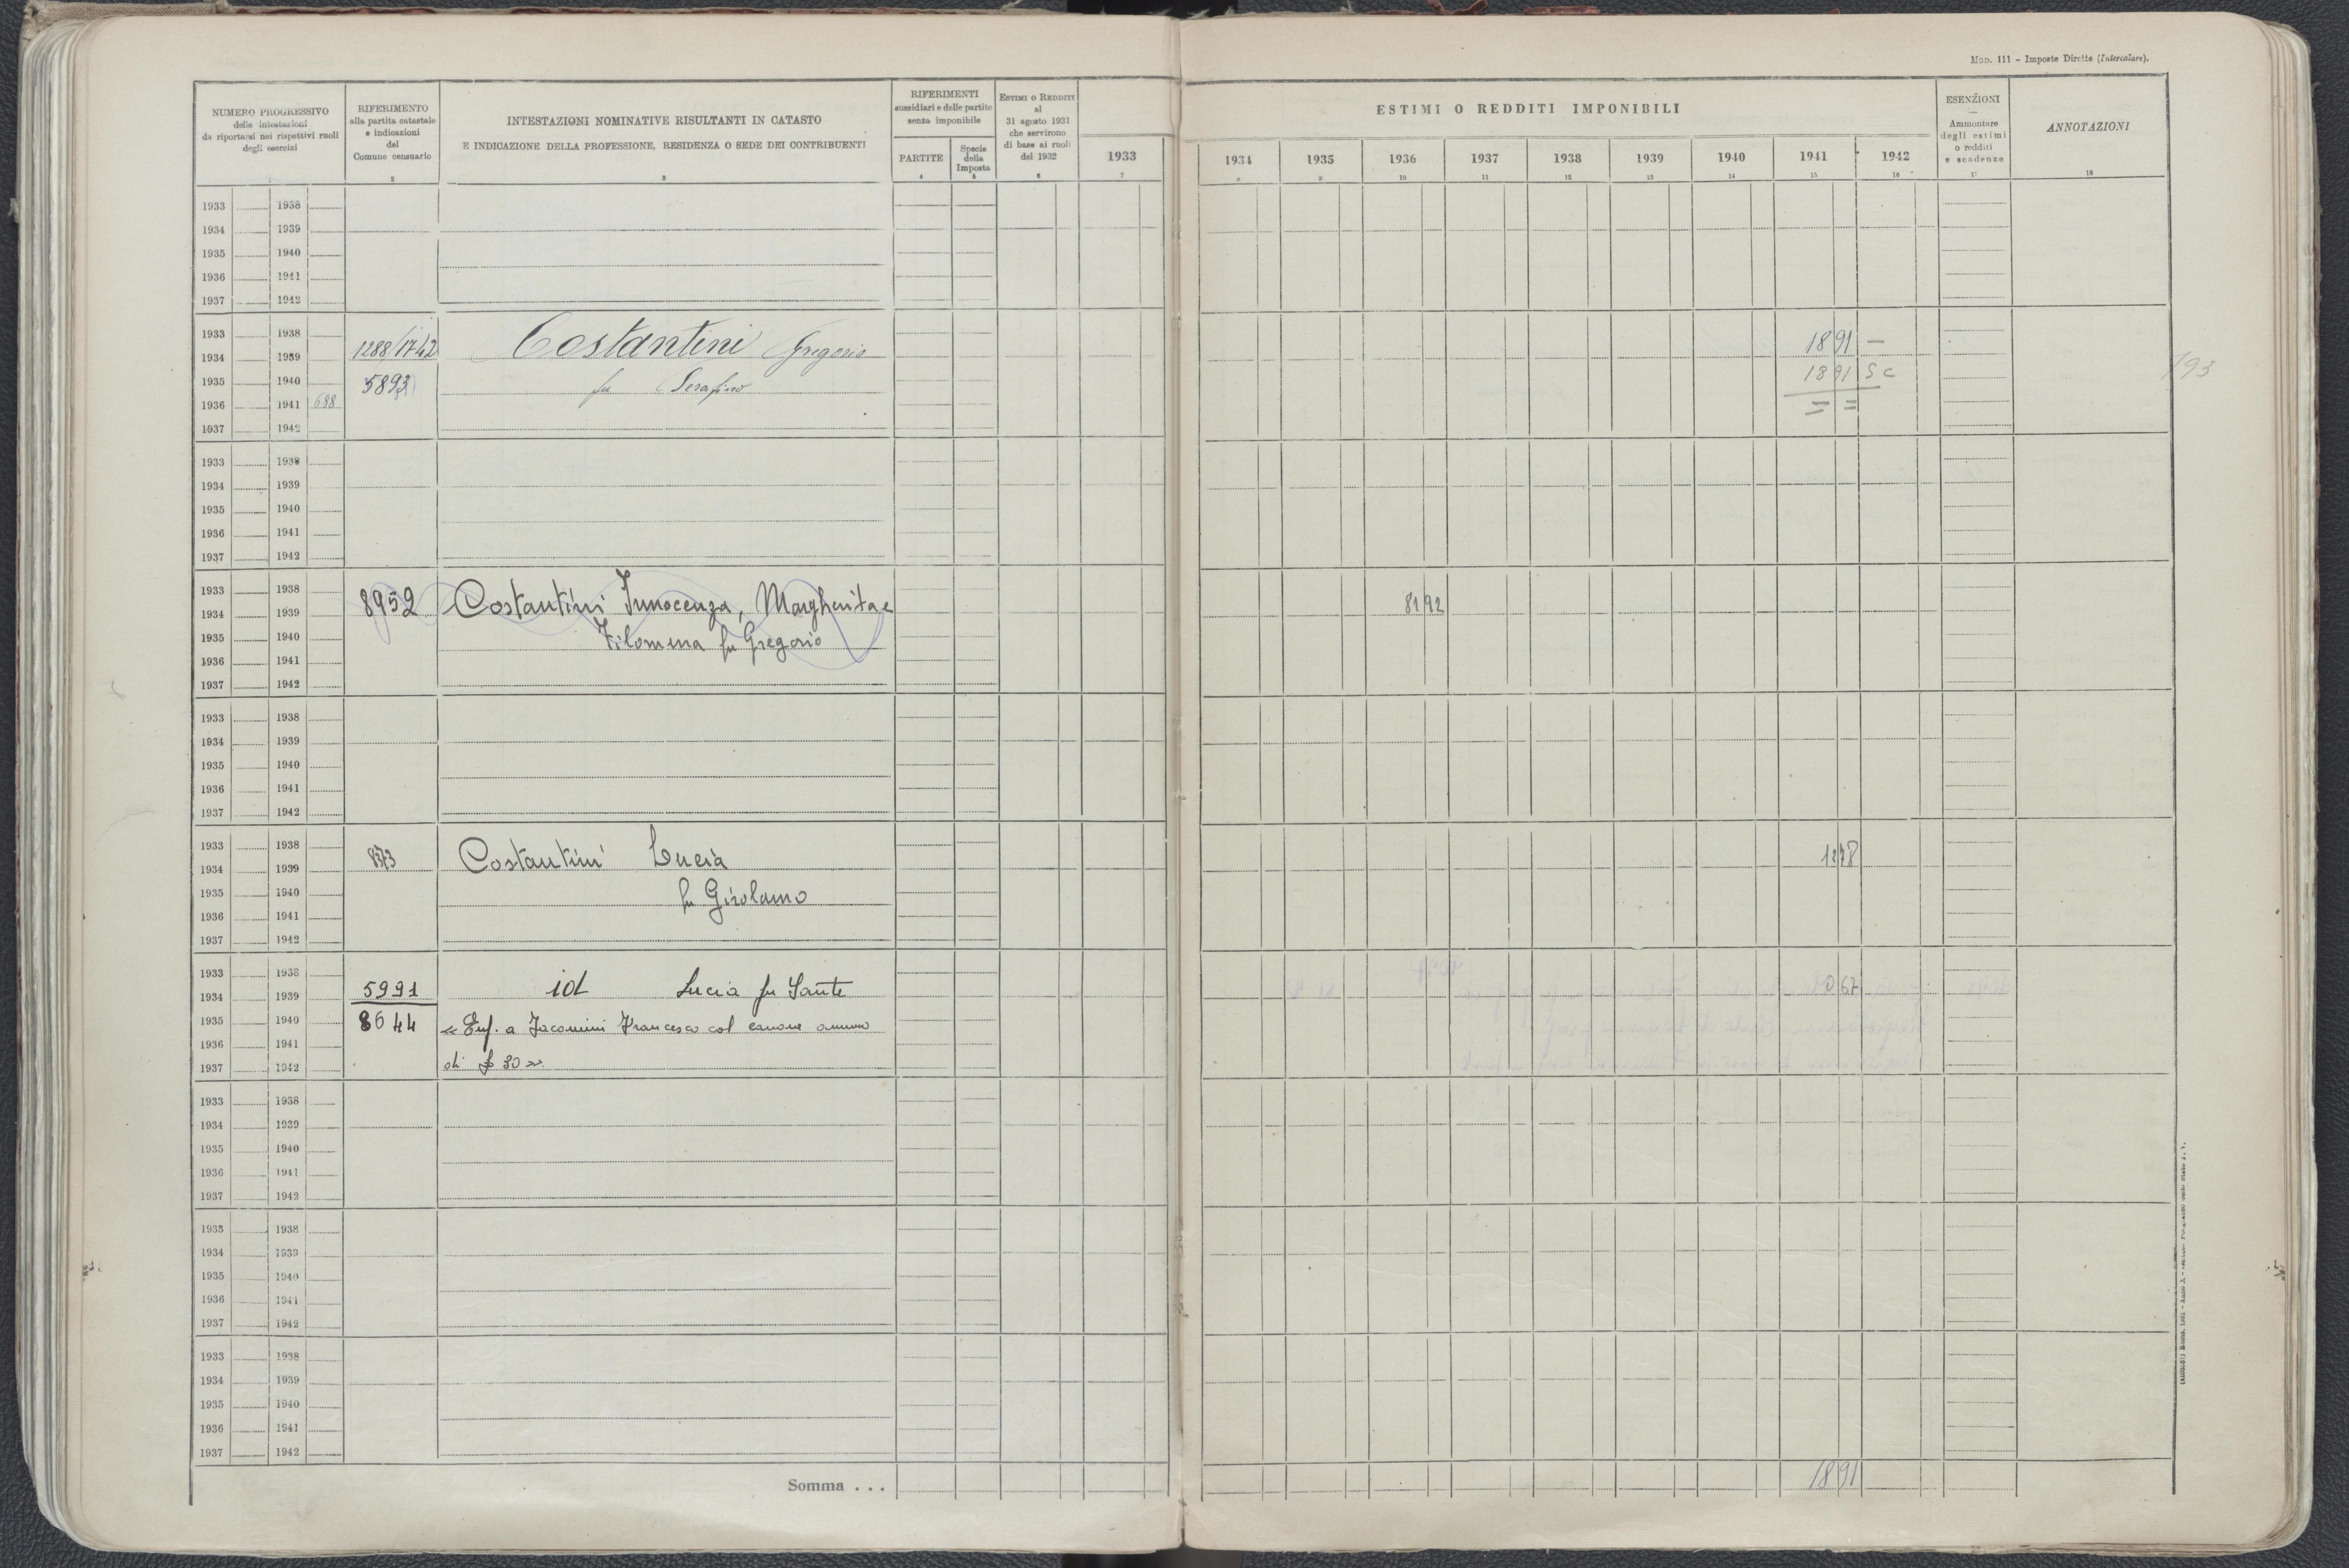 Mod. 111 - Imposte Dirette (Intercalare).
NUMERO PROGRESSIVO
delle intestazioni
da riportarsi nei rispettivi ruoli
degli esercizi
1
RIFERIMENTO
alla partita catastale
e indicazioni
del
Comune censuario
2
INTESTAZIONI NOMINATIVE RISULTANTI IN CATASTO
E INDICAZIONE DELLA PROFESSIONE, RESIDENZA O SEDE DEI CONTRIBUENTI
3
RIFERIMENTI
sussidiari e delle partite
senza imponibile
PARTITE
4
Specie
della
Imposta
5
ESTIMI O REDDITI
al
31 agosto 1931
che servirono
di base ai ruoli
del 1932
6
1933
7
ESTIMI O REDDITI IMPONIBILI
1934 1935 1936 1937 1938 1939 1940 1941 1942
8 9 10 11 12 13 14 15 16
ESENZIONI
—
Ammontare
degli estimi
o redditi
e scadenze
17
ANNOTAZIONI
18
1933 1938
1934 1939
1935 1940
1936 1941
1937 1942
1933 1938
1934 1939 1288/1742 Costantini Gregorio 1891 —
1935 1940 5893 fu Serafino 1891 SC
193
1936 1941 688 = =
1937 1942
1933 1938
1934 1939
1935 1940
1936 1941
1937 1942
1933 1938
1934 1939 8952 Costantini Innocenza, Margherita e 8192
1935 1940 Filomena fu Gregorio
1936 1941
1937 1942
1933 1938
1934 1939
1935 1940
1936 1941
1937 1942
1933 1938
1934 1939 Costantini Lucia
1935 1940 fu Girolamo
1936 1941
1937 1942
1933 1938
1934 1939 5991 id Lucia fu Sante 0 67
1935 1940 8644 « Enf. a Jacomini Francesco col canone annuo
1936 1941
1937 1942 di £ 30 »
1933 1938
1934 1939
1935 1940
1936 1941
1937 1942
1933 1938
1934 1939
1935 1940
1936 1941
1937 1942
1933 1938
1934 1939
1935 1940
1936 1941
1937 1942
Somma . . . 1891